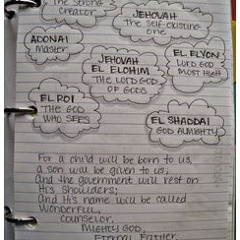 The strong
creator
JEHOVAH
the self-existing
one
ADONAI
master
JEHOVAH
EL ELOHIM
THE LORD GOD
OF GODS
EL ELYON
LORD GOD
MOST HIGH
EL ROI
THE GOD
WHO SEES
EL SHADDAI
GOD ALMIGHTY
For a child will be born to us,
a son will be given to us;
And the government will rest on
His shoulders;
And His name will be called
Wonderful,
Counselor,
Mighty God,
Eternal Father,